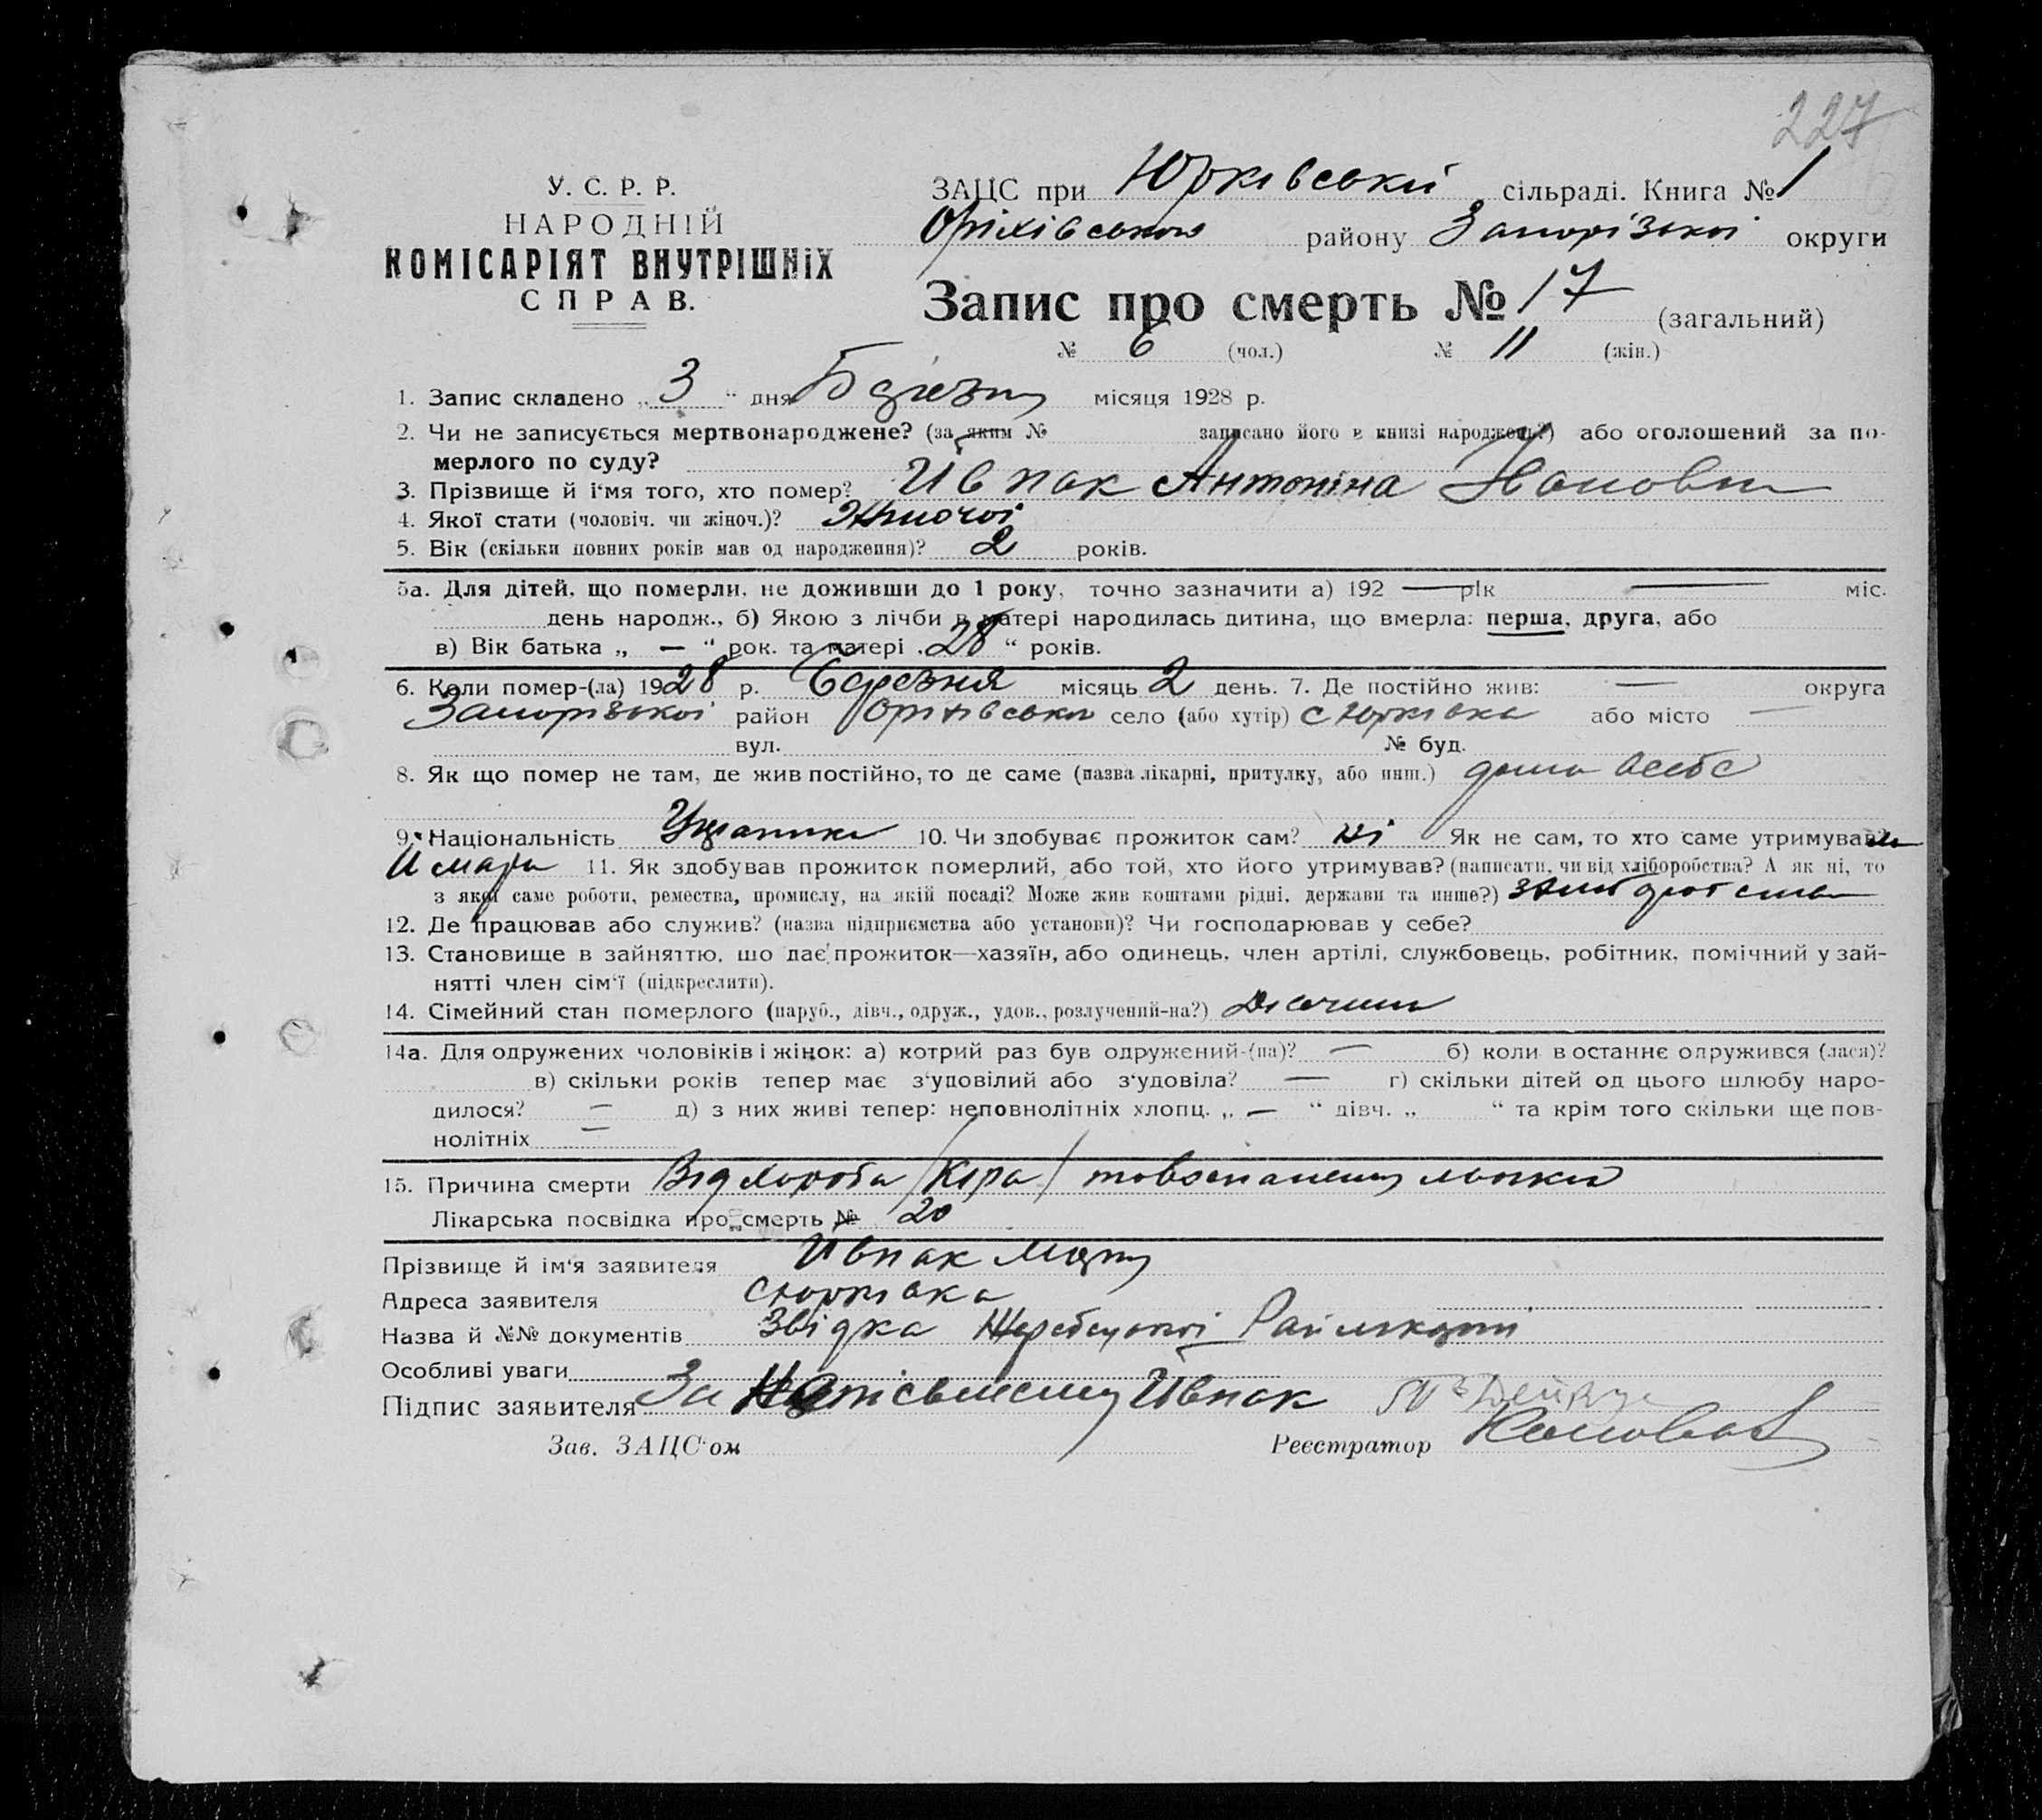 227
У. С. Р. Р.
НАРОДНІЙ
КОМІСАРІЯТ ВНУТРІШНІХ
СПРАВ.
ЗАЦС при Юрківській сільраді. Книга № 1
Оріхівського району Запорізької округи
Запис про смерть № 17 (загальний)
№ 6 (чол.) № 11 (жін.)
1. Запис складено „ 3 “ дня Березня місяця 1928 р.
2. Чи не записується мертвонароджене? (за яким № записано його в книзі народжень?) або оголошений за по-
мерлого по суду?
3. Прізвище й і‘мя того, хто помер? Ивпак Антоніна
4. Якої стати (чоловіч. чи жіноч.)? Жіночої
5. Вік (скільки повних років мав од народження)? 2 років.
5а. Для дітей, що померли, не доживши до 1 року, точно зазначити а) 192 — рік — міс.
день народж., б) Якою з лічби в матері народилась дитина, що вмерла: перша, друга, або
в) Вік батька „ — “ рок. та матері „ 28 “ років.
6. Коли помер-(ла) 1928 р. Березня місяць 2 день. 7. Де постійно жив: — округа
Запорізької район Оріхівський село (або хутір) с Юрківка або місто —
вул. № буд.
8. Як що помер не там, де жив постійно, то де саме (назва лікарні, притулку, або инш.) дома
9. Національність Українка 10. Чи здобуває прожиток сам? ні Як не сам, то хто саме утримував?
11. Як здобував прожиток померлий, або той, хто його утримував? (написати, чи від хліборобства? А як ні, то
з якої саме роботи, ремества, промислу, на якій посаді? Може жив коштами рідні, держави та инше?)
12. Де працював або служив? (назва підприємства або установи)? Чи господарював у себе?
13. Становище в зайняттю, що дає прожиток—хазяїн, або одинець, член артілі, службовець, робітник, помічний у зай-
нятті член сім‘ї (підкреслити).
14. Сімейний стан померлого (паруб., дівч., одруж., удов., розлучений-на?) Дівчина
14а. Для одружених чоловіків і жінок: а) котрий раз був одружений-(на)? — б) коли в останнє одружився (лася)?
в) скільки років тепер має з‘удовілий або з‘удовіла? — г) скільки дітей од цього шлюбу наро-
дилося? — д) з них живі тепер: неповнолітніх хлопц. „ — “ дівч. „ “ та крім того скільки ще пов-
нолітніх —
15. Причина смерти Від хороба /Кіра/
Лікарська посвідка про смерть № 20
Прізвище й ім‘я заявителя Ивпак
Адреса заявителя с Юрківка
Назва й №№ документів Звідка
Особливі уваги
Підпис заявителя За Ивпак
Зав. ЗАЦС‘ом Реєстратор